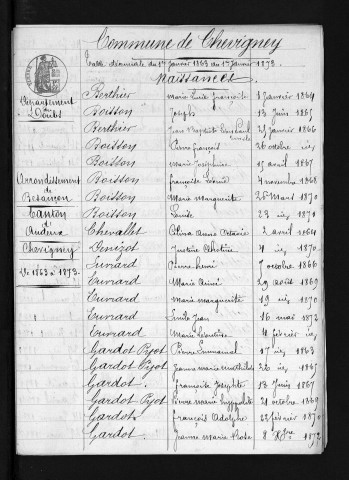 Commune de Chevigney
Table décennale du 1er Janvier 1863 au 1er Janvier 1873.
Naissances
Département du Doubs
Arrondissement de Besançon
Canton d'Audeux
Chevigney
De 1863 à 1873.
Berthier Marie françoise 1 Janvier 1864
Boisson Joseph 13 Juin 1865
Berthier Jean Baptiste 25 Janvier 1866
Boisson Pierre françois 26 octobre id
Boisson Marie Joséphine 15 avril 1867
Boisson françoise 4 novembre 1868
Boisson Marie Marguerite 26 Mars 1870
Boisson Louise 23 id 1870
Chevallet Anne Octavie 2 avril 1864
Denizot Justine 4 id 1870
Euvrard Pierre 7 octobre 1866
Euvrard Marie 29 août 1869
Euvrard Marie marguerite 19 id 1870
Euvrard Emile Jean 16 mai 1872
Euvrard Marie 4 février id
Gardot Pyot Pierre Emmanuel 17 id 1863
Gardot Pyot Jeanne Marie Mathilde 26 id
Gardot. françoise Josephte 13 Juin 1867
Gardot Pyot Pierre Marie hyppolite 21 octobre 1869
Gardot. françois Adolphe 22 février 1870
Gardot. Jeanne Marie 8 1872